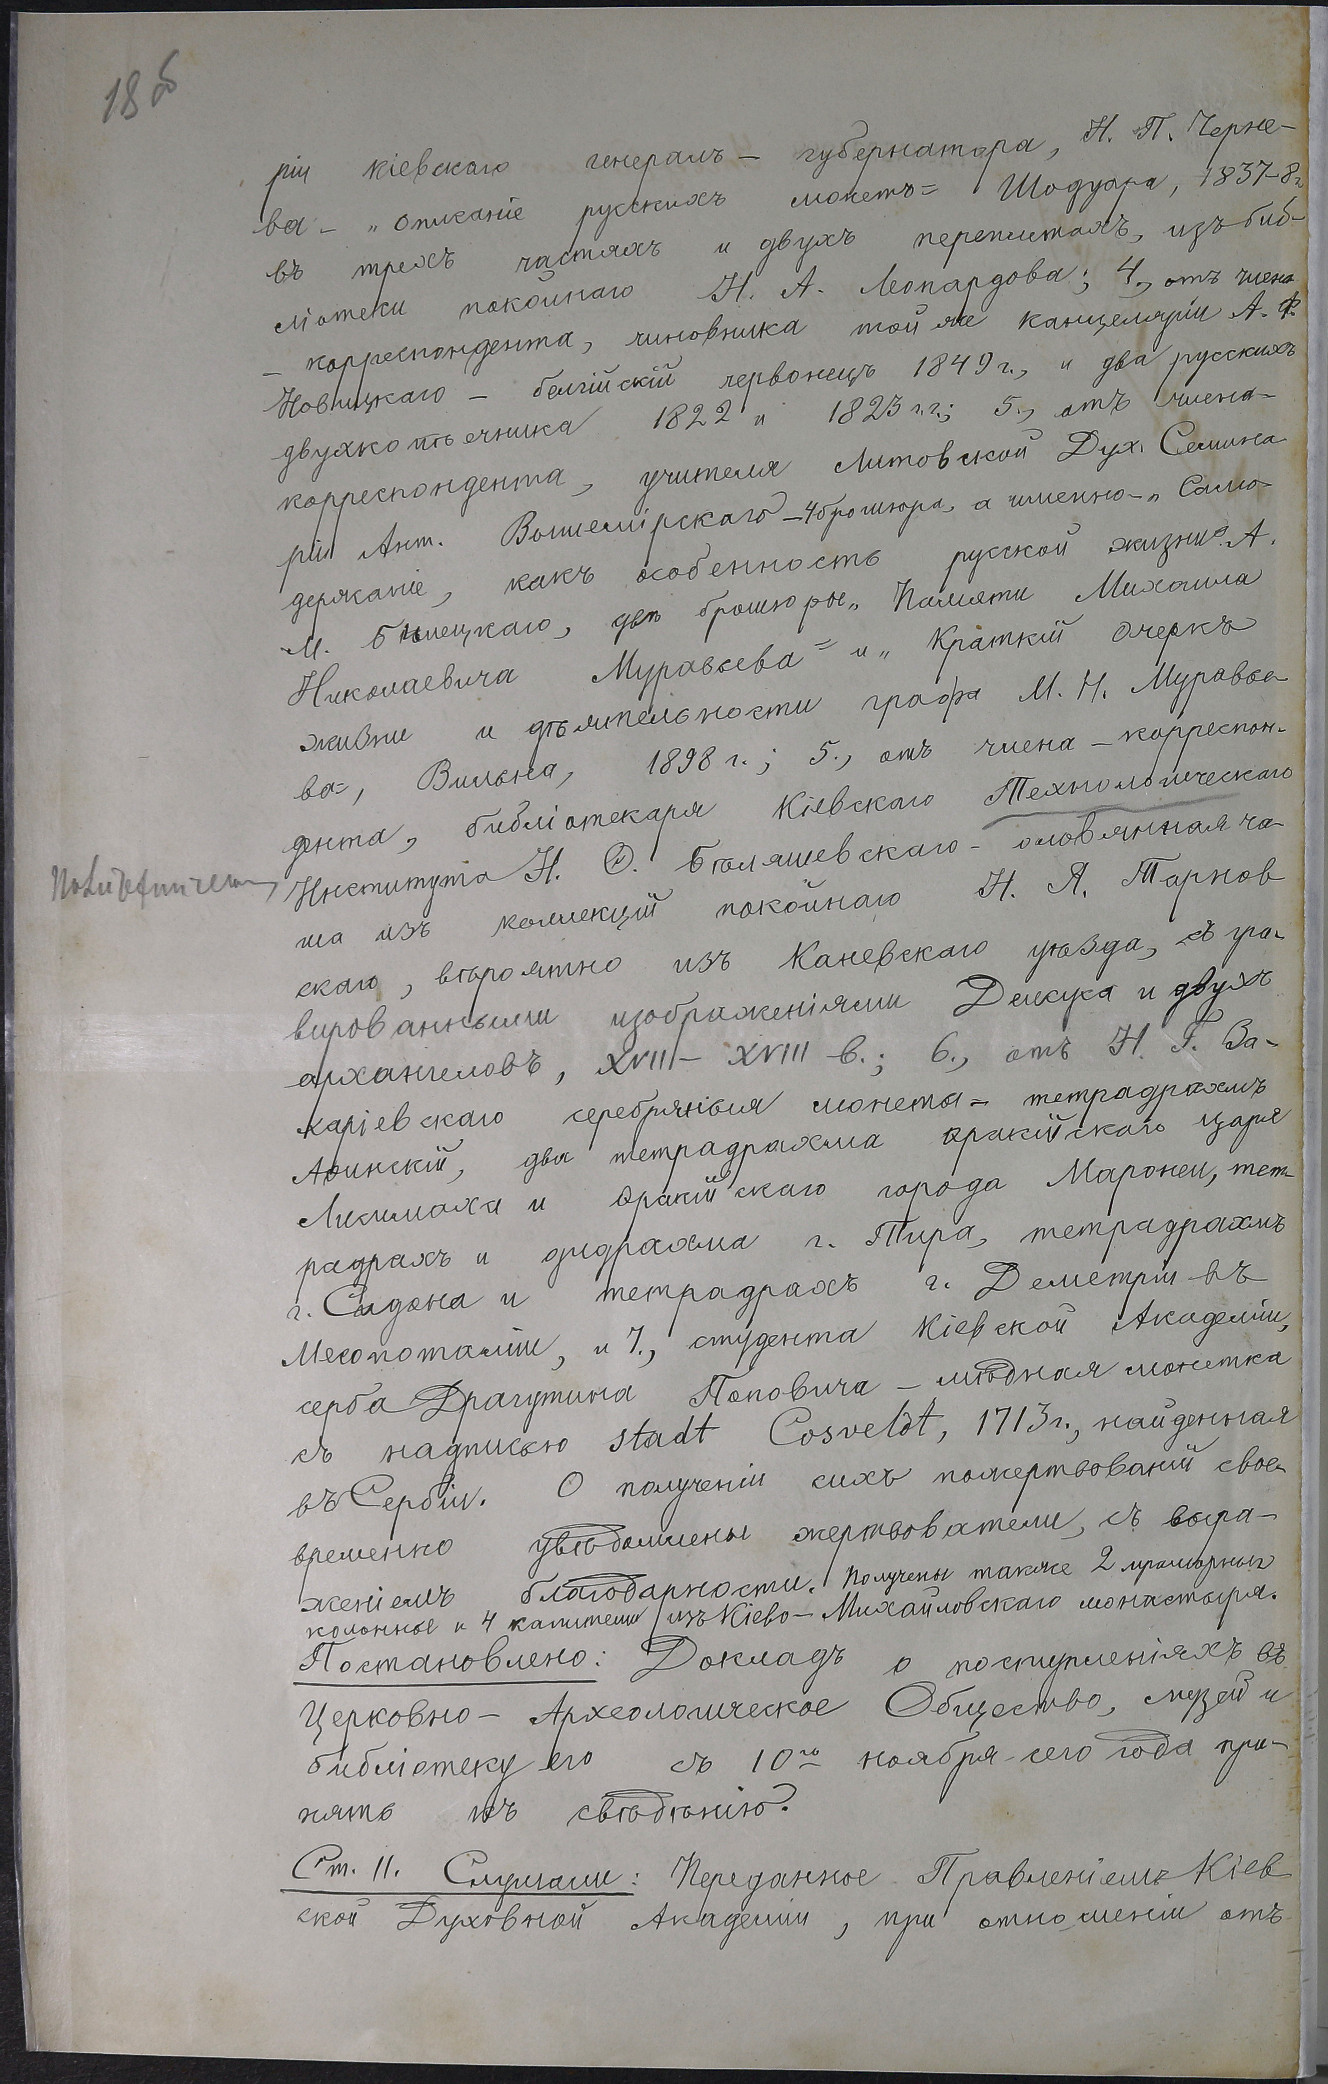 18 б
ріи кіевскаго генералъ - губернатора, Н. П. Черне-
ва - „описаніе русскихъ монетъ“ Шодуара, 1837-8 г.
въ трехъ частяхъ и двухъ переплетахъ, изъ биб-
ліотеки покойнаго Н. А. Леопардова; 4., отъ члена
- корреспондента, чиновника той же канцеляріи А. Ф.
Новицкаго - белгійскій червонецъ 1849 г., и два русскихъ
двухкопѣечника 1822 и 1823 г.г.; 5., отъ члена-
корреспондента, учителя Литовской Дух. Семина
ріи Ант. - 4 брошюра, а именно - „Само-
держаніе, какъ особенность русской жизни“ А.
М. Бѣлецкаго, двѣ брошюры „Памяти Михаила
Николаевича Муравьева“ и „Краткій очеркъ
жизни и дѣятельности графа М. Н. Муравье-
ва“, Вильна, 1898 г.; 5., отъ члена - корреспон-
дента, библіотекаря Кіевскаго Технологическаго
Политехническаго
Института Н. Ѳ. Бѣляшевскаго - оловянная ча-
ша изъ коллекцій покойнаго Н. Я. Тарнов
скаго, вѣроятно изъ Каневскаго уѣзда, съ гра-
вированными изображеніями Деисуса и двухъ
архангеловъ, XVII - XVIII в.; 6., отъ Н. Г. За-
харіевскаго серебряныя монеты - тетрадрахмъ
Аѳинскій, два тетрадрахма ѳракійскаго царя
Лисимаха и ѳракійскаго города Маронеи, тет-
радрахъ и дидрахма г. Тира, тетрадрахмъ
г. Сидона и тетрадрахъ г. Деметріи въ
Месопотаміи, и 7., студента Кіевской Академіи,
серба Драгутина Поповича - мѣдная монетка
съ надписью stadt Cosveldt, 1713 г., найденная
въ Сербіи. О полученіи сихъ пожертвованій свое-
временно увѣдомлены жертвователи, съ выра-
женіемъ благодарности. Получены также 2 мраморныя
колонны и 4 капители изъ Кіево - Михайловскаго монастыря.
Постановлено: Докладъ о поступленіяхъ въ
Церковно - Археологическое Общество, музей и
библіотеку его съ 10го ноября сего года при-
нять къ свѣдѣнію.
Ст. 11. Слушали: Переданное Правленіемъ Кіев
ской Духовной Академіи, при отношеніи отъ